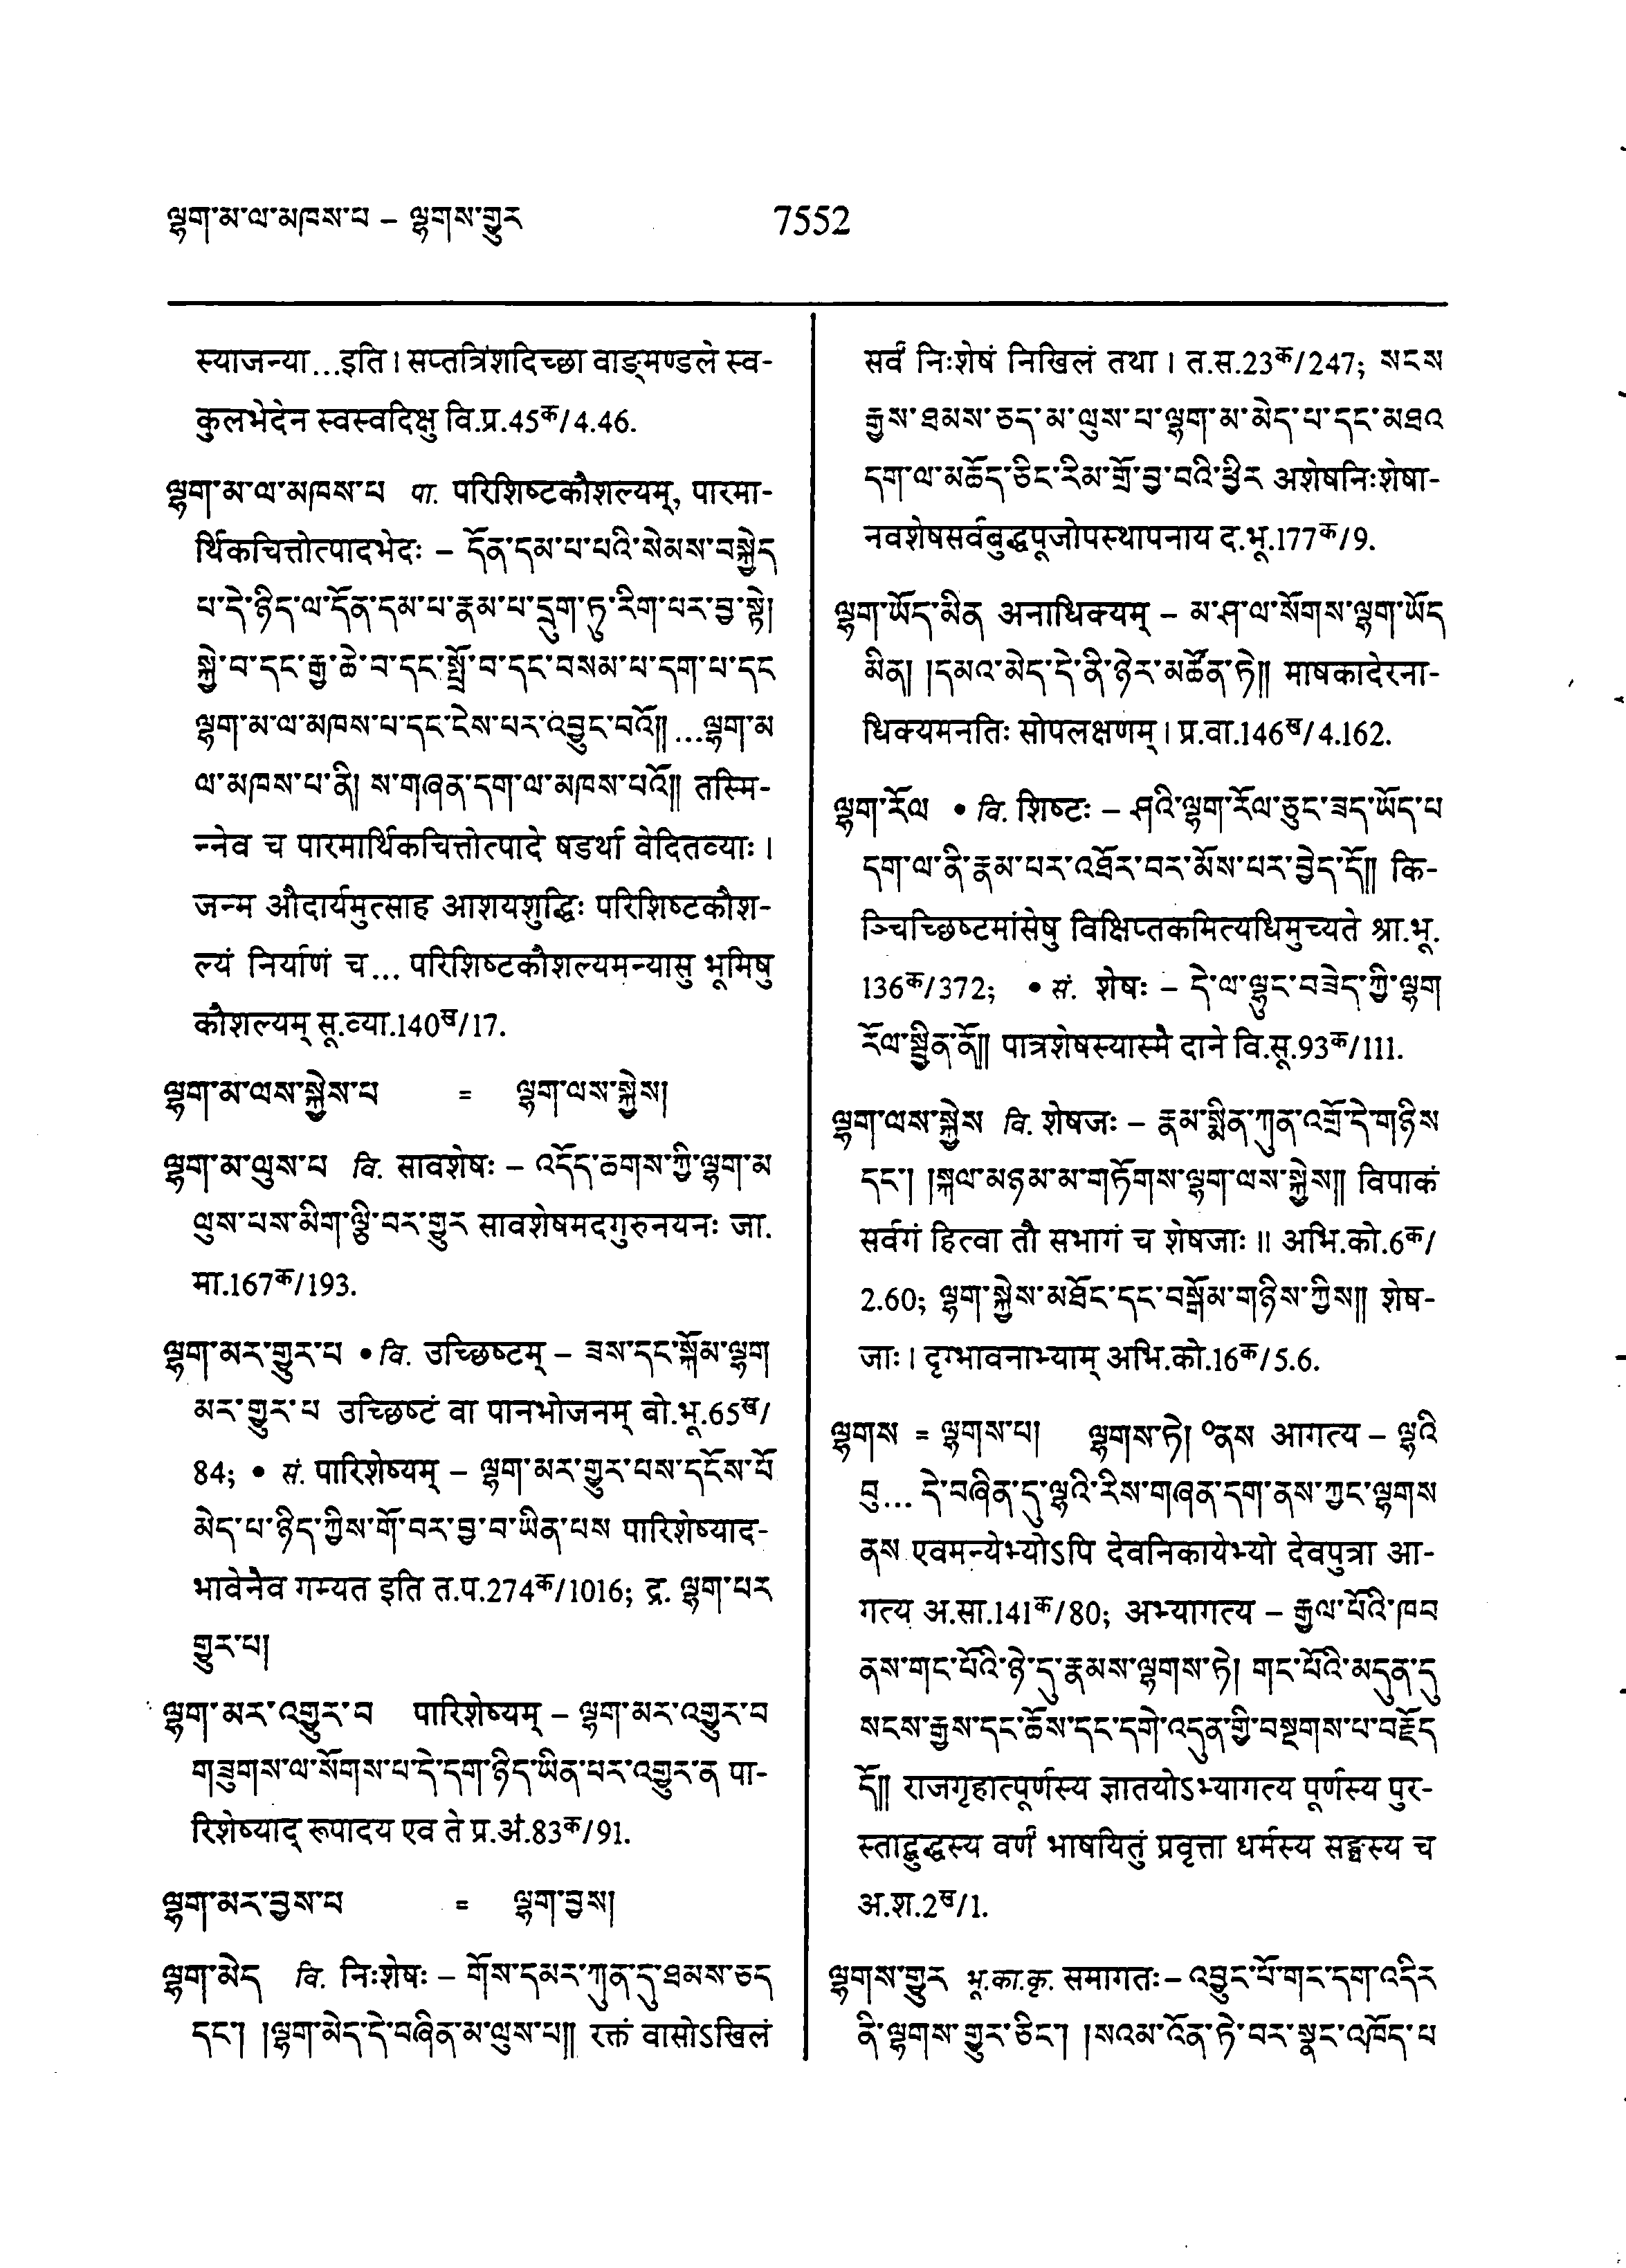 ལྷག་མ་ལ་མཁས་པ – ལྷགས་གྱུར
7552
स्याजन्या...इति । सप्तत्रिंशदिच्छा वाङ्मण्डले स्व-
कुलभेदेन स्वस्वदिक्षु वि.प्र.45क/4.46.
ལྷག་མ་ལ་མཁས་པ पा. परिशिष्टकौशल्यम्, पारमा-
र्थिकचित्तोत्पादभेदः – དོན་དམ་པ་པའི་སེམས་བསྐྱེད
པ་དེ་ཉིད་ལ་དོན་དམ་པ་རྣམ་པ་དྲུག་ཏུ་རིག་པར་བྱ་སྟེ།
སྐྱེ་བ་དང་རྒྱ་ཆེ་བ་དང་སྤྲོ་བ་དང་བསམ་པ་དག་པ་དང
ལྷག་མ་ལ་མཁས་པ་དང་ངེས་པར་འབྱུང་བའོ།། ...ལྷག་མ
ལ་མཁས་པ་ནི། ས་གཞན་དག་ལ་མཁས་པའོ།། तस्मि-
न्नेव च पारमार्थिकचित्तोत्पादे षडर्था वेदितव्याः ।
जन्म औदार्यमुत्साह आशयशुद्धिः परिशिष्टकौश-
ल्यं निर्याणं च... परिशिष्टकौशल्यमन्यासु भूमिषु
कौशल्यम् सू.व्या.140ख/17.
ལྷག་མ་ལས་སྐྱེས་པ = ལྷག་ལས་སྐྱེས།
ལྷག་མ་ལུས་པ वि. सावशेषः – འདོད་ཆགས་ཀྱི་ལྷག་མ
ལུས་པས་མིག་ལྕི་བར་གྱུར सावशेषमदगुरुनयनः जा.
मा.167क/193.
ལྷག་མར་གྱུར་པ • वि. उच्छिष्टम् – ཟས་དང་སྐོམ་ལྷག
མར་གྱུར་པ उच्छिष्टं वा पानभोजनम् बो.भू.65ख/
84; • सं. पारिशेष्यम् – ལྷག་མར་གྱུར་པས་དངོས་པོ
མེད་པ་ཉིད་ཀྱིས་གོ་བར་བྱ་བ་ཡིན་པས पारिशेष्याद-
भावेनैव गम्यत इति त.प.274क/1016; द्र. ལྷག་པར
གྱུར་པ།
ལྷག་མར་འགྱུར་བ पारिशेष्यम् – ལྷག་མར་འགྱུར་བ
གཟུགས་ལ་སོགས་པ་དེ་དག་ཉིད་ཡིན་པར་འགྱུར་ན पा-
रिशेष्याद् रूपादय एव ते प्र.अं.83क/91.
ལྷག་མར་བྱས་པ = ལྷག་བྱས།
ལྷག་མེད वि. निःशेषः – གོས་དམར་ཀུན་དུ་ཐམས་ཅད
དང་། །ལྷག་མེད་དེ་བཞིན་མ་ལུས་པ།། रक्तं वासोऽखिलं
सर्वं निःशेषं निखिलं तथा । त.स.23क/247; སངས
རྒྱས་ཐམས་ཅད་མ་ལུས་པ་ལྷག་མ་མེད་པ་དང་མཐའ
དག་ལ་མཆོད་ཅིང་རིམ་གྲོ་བྱ་བའི་ཕྱིར अशेषनिःशेषा-
नवशेषसर्वबुद्धपूजोपस्थापनाय द.भू.177क/9.
ལྷག་ཡོད་མིན अनाधिक्यम् – མ་ཤ་ལ་སོགས་ལྷག་ཡོད
མིན། །དམའ་མེད་དེ་ནི་ཉེར་མཚོན་ཏེ།། माषकादेरना-
धिक्यमनतिः सोपलक्षणम् । प्र.वा.146ख/4.162.
ལྷག་རོལ • वि. शिष्टः – ཤའི་ལྷག་རོལ་ཅུང་ཟད་ཡོད་པ
དག་ལ་ནི་རྣམ་པར་འཐོར་བར་མོས་པར་བྱེད་དོ།། कि-
ञ्चिच्छिष्टमांसेषु विक्षिप्तकमित्यधिमुच्यते श्रा.भू.
136क/372; • सं. शेषः – དེ་ལ་ལྷུང་བཟེད་ཀྱི་ལྷག
རོལ་སྦྱིན་ནོ།། पात्रशेषस्यास्मै दाने वि.सू.93क/111.
ལྷག་ལས་སྐྱེས वि. शेषजः – རྣམ་སྨིན་ཀུན་འགྲོ་དེ་གཉིས
དང་། །སྐལ་མཉམ་མ་གཏོགས་ལྷག་ལས་སྐྱེས།། विपाकं
सर्वगं हित्वा तौ सभागं च शेषजाः ॥ अभि.को.6क/
2.60; ལྷག་སྐྱེས་མཐོང་དང་བསྒོམ་གཉིས་ཀྱིས།། शेष-
जाः । दृग्भावनाभ्याम् अभि.को.16क/5.6.
ལྷགས = ལྷགས་པ། ལྷགས་ཏེ། ०ནས आगत्य – ལྷའི
བུ... དེ་བཞིན་དུ་ལྷའི་རིས་གཞན་དག་ནས་ཀྱང་ལྷགས
ནས एवमन्येभ्योऽपि देवनिकायेभ्यो देवपुत्रा आ-
गत्य अ.सा.141क/80; अभ्यागत्य – རྒྱལ་པོའི་ཁབ
ནས་གང་པོའི་ཉེ་དུ་རྣམས་ལྷགས་ཏེ། གང་པོའི་མདུན་དུ
སངས་རྒྱས་དང་ཆོས་དང་དགེ་འདུན་གྱི་བསྔགས་པ་བརྗོད
དོ།། राजगृहात्पूर्णस्य ज्ञातयोऽभ्यागत्य पूर्णस्य पुर-
स्ताद्बुद्धस्य वर्णं भाषयितुं प्रवृत्ता धर्मस्य सङ्घस्य च
अ.श.2ख/1.
ལྷགས་གྱུར भू.का.कृ. समागतः – འབྱུང་པོ་གང་དག་འདིར
ནི་ལྷགས་གྱུར་ཅིང་། །སའམ་འོན་ཏེ་བར་སྣང་འཁོད་པ